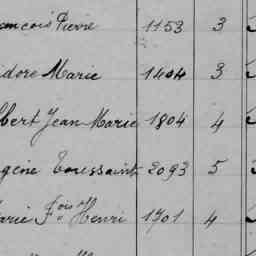 ançois Pierre 1153 3
idore Marie 1404 3
lbert Jean Marie 1804 4
gène Toussaint 2093 5
arie Fois Henri 1701 4